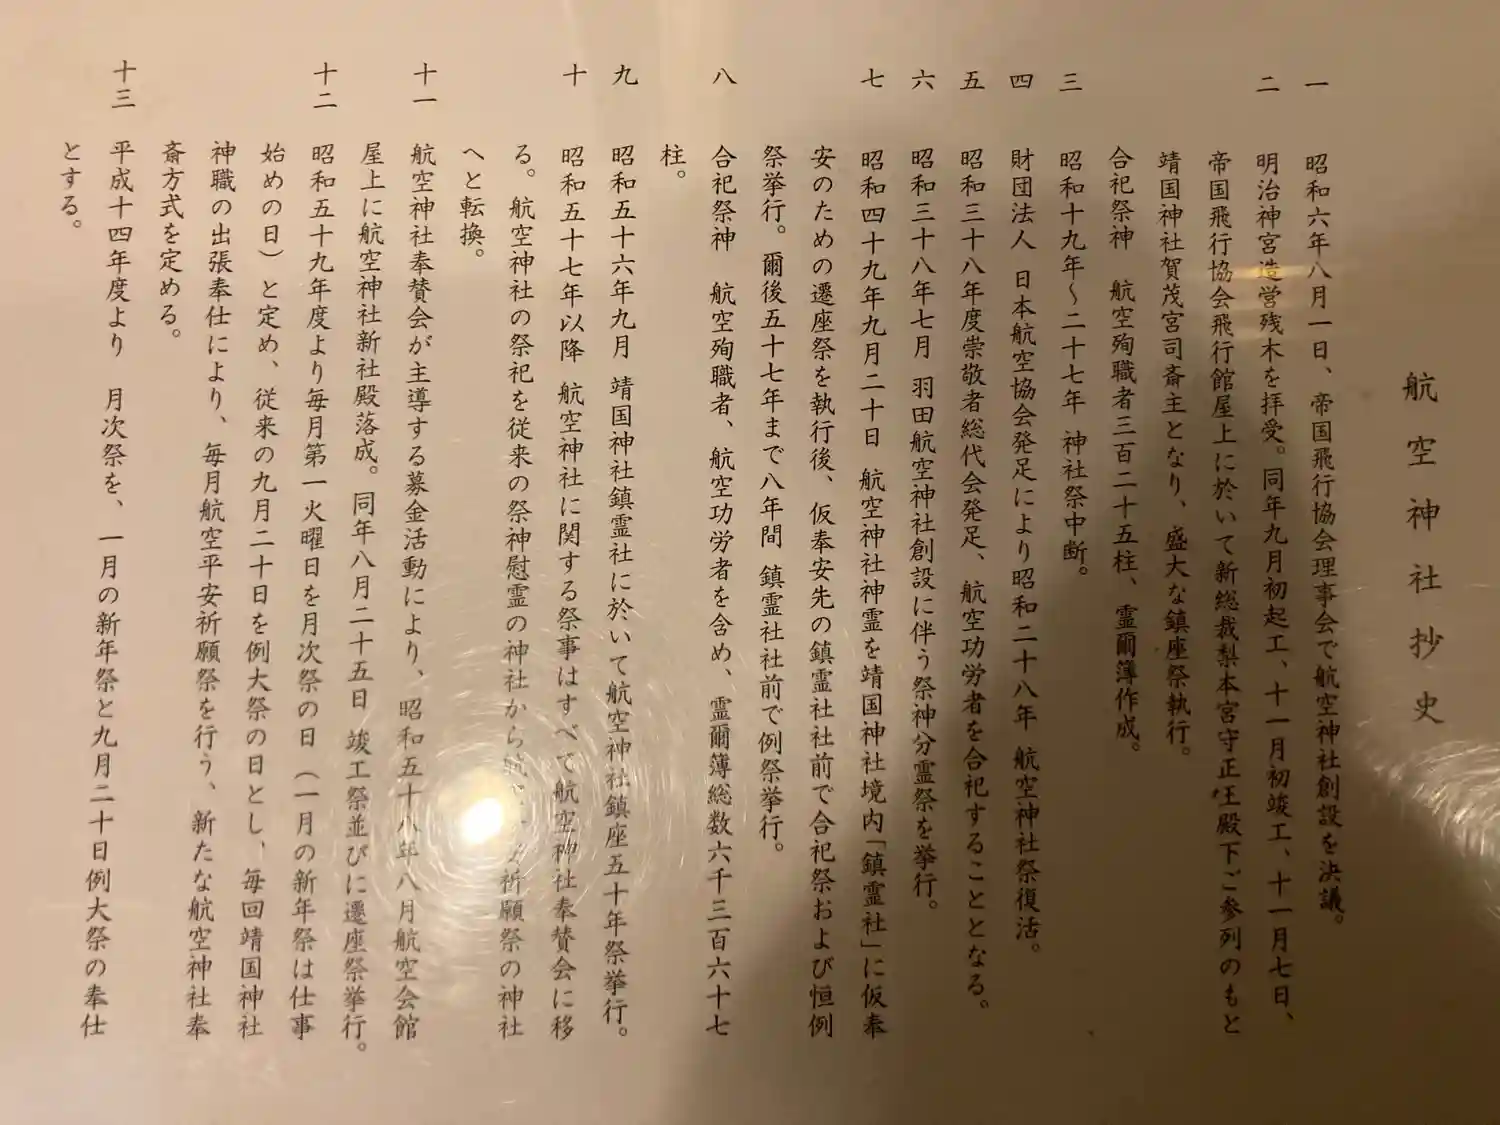 航空神社抄史
一 昭和六年八月一日、帝国飛行協会理事会で航空神社創設を決議。
二 明治神宮造営残木を拝受。同年九月初起工、十一月初竣工、十一月七日、
帝国飛行協会飛行館屋上に於いて新総裁梨本宮守正王殿下ご参列のもと
靖国神社賀茂宮司斎主となり、盛大な鎮座祭執行。
合祀祭神 航空殉職者三百二十五柱、霊爾簿作成。
三 昭和十九年〜二十七年 神社祭中断。
四 財団法人 日本航空協会発足により昭和二十八年 航空神社祭復活。
五 昭和三十八年度崇敬者総代会発足、航空功労者を合祀することとなる。
六 昭和三十八年七月 羽田航空神社創設に伴う祭神分霊祭を挙行。
七 昭和四十九年九月二十日 航空神社神霊を靖国神社境内「鎮霊社」に仮奉
安のための遷座祭を執行後、仮奉安先の鎮霊社社前で合祀祭および恒例
祭挙行。爾後五十七年まで八年間 鎮霊社社前で例祭挙行。
八 合祀祭神 航空殉職者、航空功労者を含め、霊爾簿総数六千三百六十七
柱。
九 昭和五十六年九月 靖国神社鎮霊社に於いて航空神社鎮座五十年祭挙行。
十 昭和五十七年以降 航空神社に関する祭事はすべて航空神社奉賛会に移
る。航空神社の祭祀を従来の祭神慰霊の神社から 祈願祭の神社
へと転換。
十一 航空神社奉賛会が主導する募金活動により、昭和五十八年八月航空会館
屋上に航空神社新社殿落成。同年八月二十五日 竣工祭並びに遷座祭挙行。
十二 昭和五十九年度より毎月第一火曜日を月次祭の日（一月の新年祭は仕事
始めの日）と定め、従来の九月二十日を例大祭の日とし、毎回靖国神社
神職の出張奉仕により、毎月航空平安祈願祭を行う、新たな航空神社奉
斎方式を定める。
十三 平成十四年度より 月次祭を、一月の新年祭と九月二十日例大祭の奉仕
とする。